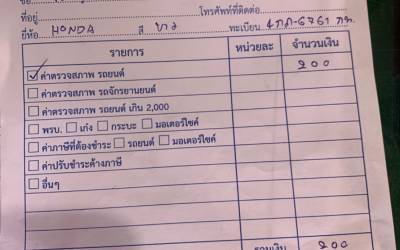 ที่อยู่ โทรศัพท์ที่ติดต่อ
ยี่ห้อ HONDA สี ขาว ทะเบียน 4กภ-6761 กท.
รายการ หน่วยละ จำนวนเงิน
ค่าตรวจสภาพ รถยนต์ 200
ค่าตรวจสภาพ รถจักรยานยนต์
ค่าตรวจสภาพ รถยนต์ เกิน 2,000
พรบ. เก๋ง กระบะ มอเตอร์ไซค์
ค่าภาษีที่ต้องชำระ รถยนต์ มอเตอร์ไซค์
ค่าปรับชำระค้างภาษี
อื่นๆ
รวมเงิน 200